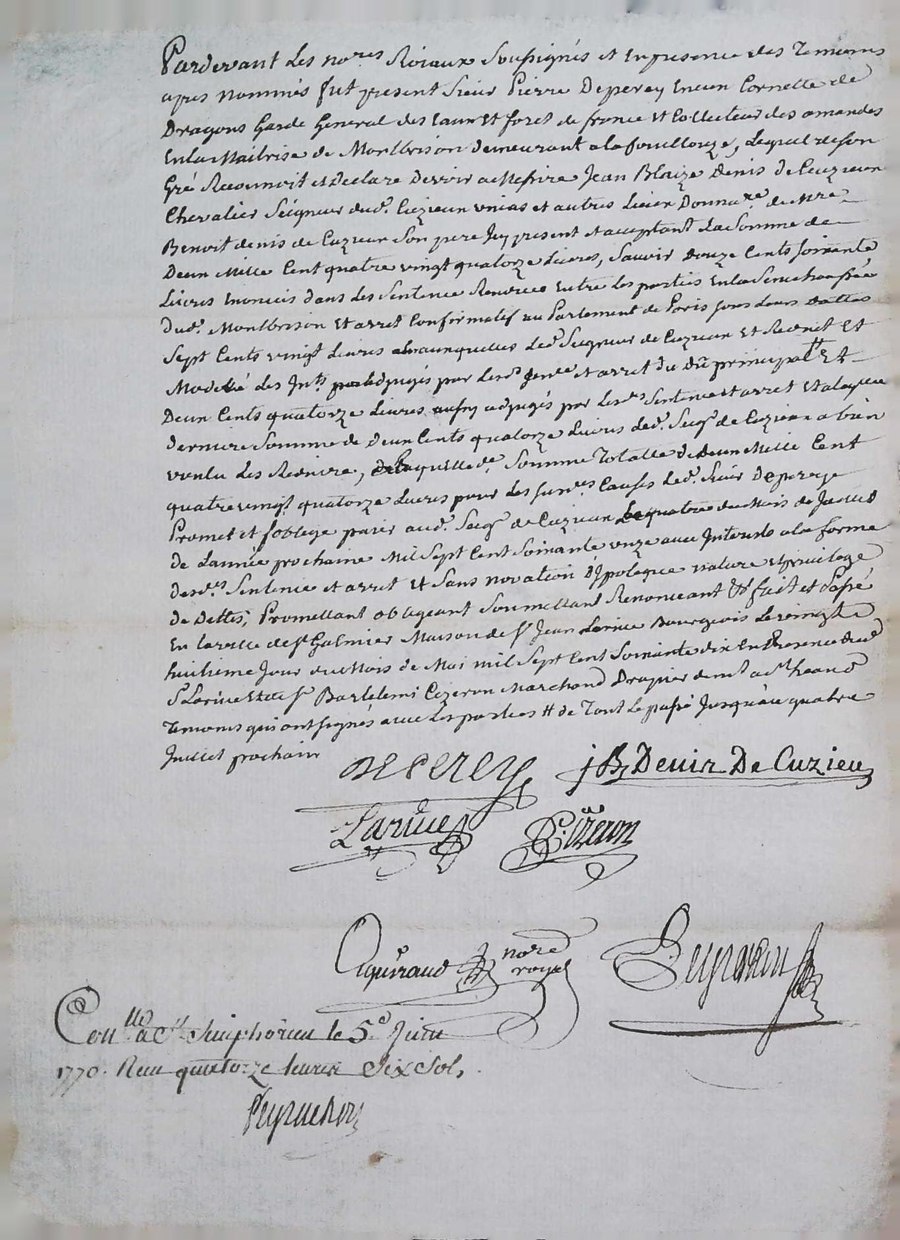 Pardevant Les no.res Roiaux Soussignés et En presence des Temoins
apres nommés fut present Sieur Pierre Deperey Encien Cornette de
Dragons Garde General des Eaux Et foret de france Et Collecteur des amandes
En la Maitrise de Montbrison demeurant a la fouillouze, Lequel de son
Gré Reconnoit et declare Devoir a Messire Jean Blaize Denis de Cuzieu
Chevalier Seigneur dud. Cuzieu unias et autres Lieux Donna.re de M.re
Benoit denis de Cuzieu Son pere Icy present et acceptant La Somme de
Deux Mille Cent quatre vingt quatorze Livres, Savoir douze Cents soixante
Livres enoncés dans Les Sentence Rendües Entre Les parties En la Senechaussée
dud. Montbrison Et arret Confirmatif au Parlement de Paris sous Leurs dattes
Sept Cents vingt Livres auxquelles Led. Seigneur de Cuzieu Et Et
Moderé Les Int.s adjugés par Lesd. Sen.ce et arret du dû principal Et
Deux Cents quatorze Livres aussy adjugés par Lesd. Sentence et arret Et a laquelle
derniere Somme de Deux Cents quatorze Livres Led. Seig.r de Cuzieu a bien
voulu Les Reduire, de Laquelle d.e Somme Totalle de Deux Mille Cent
quatre vingt quatorze Livres pour Les susd.es Causes Led. Sieur Deperey
Promet et s'oblige paier aud. Seig.r de Cuzieu Le quatre du Mois de
de L'année prochaine Mil Sept Cent Soixante onze avec Interets a la forme
desd.es Sentence et arret Et Sans novation D'Ipoteque nature et privilege
de dettes, Promettant obligeant Soumettant Renonceant &.a fait et Passé
En la ville de S.t Galmier Maison de S.r Jean Larive Bourgeois Le vingt
huitieme Jour du Mois de Mai mil Sept Cent Soixante dix En Presence dud.
S.r Larive Et du S.r Bartelemi Cizeron Marchand Drapier dem.t a S.t heand
Temoins qui ont signés avec Les parties # de Tout Le passé Jusqu'au quatre
Juillet prochain
Deperey j B Denis De Cuzieu
Larive Cizeron
no.re royal
Con.llé a S.t Simphorien le 5.e Juin
1770. Reçu quatorze Livres Six Sols.